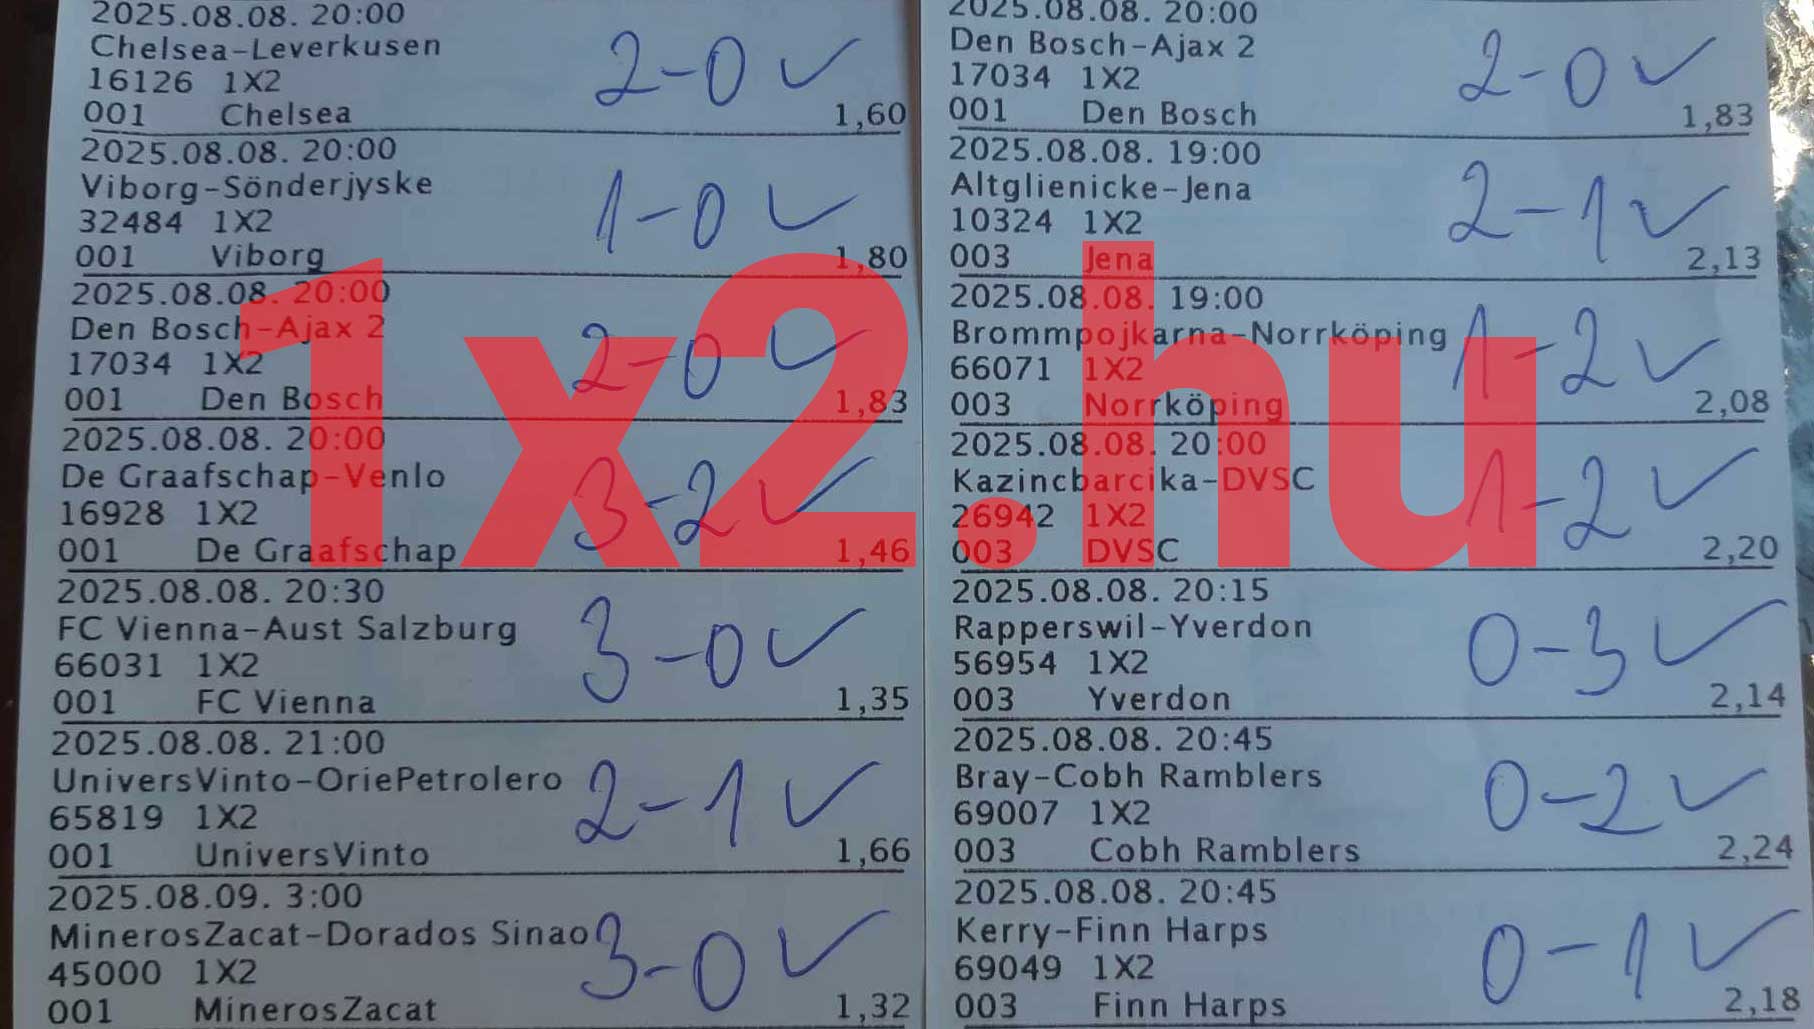 2025.08.08. 20:00
Chelsea-Leverkusen
16126 1X2
001 Chelsea 1,60
2-0 ✓
2025.08.08. 20:00
Viborg-Sönderjyske
32484 1X2
001 Viborg 1,80
1-0 ✓
2025.08.08. 20:00
Den Bosch-Ajax 2
17034 1X2
001 Den Bosch 1,83
2-0 ✓
2025.08.08. 20:00
De Graafschap-Venlo
16928 1X2
001 De Graafschap 1,46
3-2 ✓
2025.08.08. 20:30
FC Vienna-Aust Salzburg
66031 1X2
001 FC Vienna 1,35
3-0 ✓
2025.08.08. 21:00
UniversVinto-OriePetrolero
65819 1X2
001 UniversVinto 1,66
2-1 ✓
2025.08.09. 3:00
MinerosZacat-Dorados Sinao
45000 1X2
001 MinerosZacat 1,32
3-0 ✓
2025.08.08. 20:00
Den Bosch-Ajax 2
17034 1X2
001 Den Bosch 1,83
2-0 ✓
2025.08.08. 19:00
Altglienicke-Jena
10324 1X2
003 Jena 2,13
2-1 ✓
2025.08.08. 19:00
Brommpojkarna-Norrköping
66071 1X2
003 Norrköping 2,08
1-2 ✓
2025.08.08. 20:00
Kazincbarcika-DVSC
26942 1X2
003 DVSC 2,20
1-2 ✓
2025.08.08. 20:15
Rapperswil-Yverdon
56954 1X2
003 Yverdon 2,14
0-3 ✓
2025.08.08. 20:45
Bray-Cobh Ramblers
69007 1X2
003 Cobh Ramblers 2,24
0-2 ✓
2025.08.08. 20:45
Kerry-Finn Harps
69049 1X2
003 Finn Harps 2,18
0-1 ✓
1x2.hu